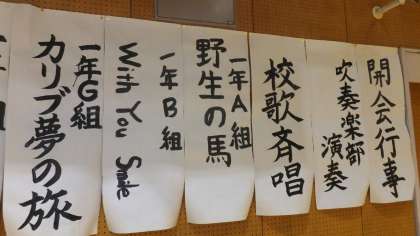 開会行事
吹奏楽部
演奏
校歌斉唱
一年A組
野生の馬
一年B組
With You Smile
一年G組
カリブ夢の旅